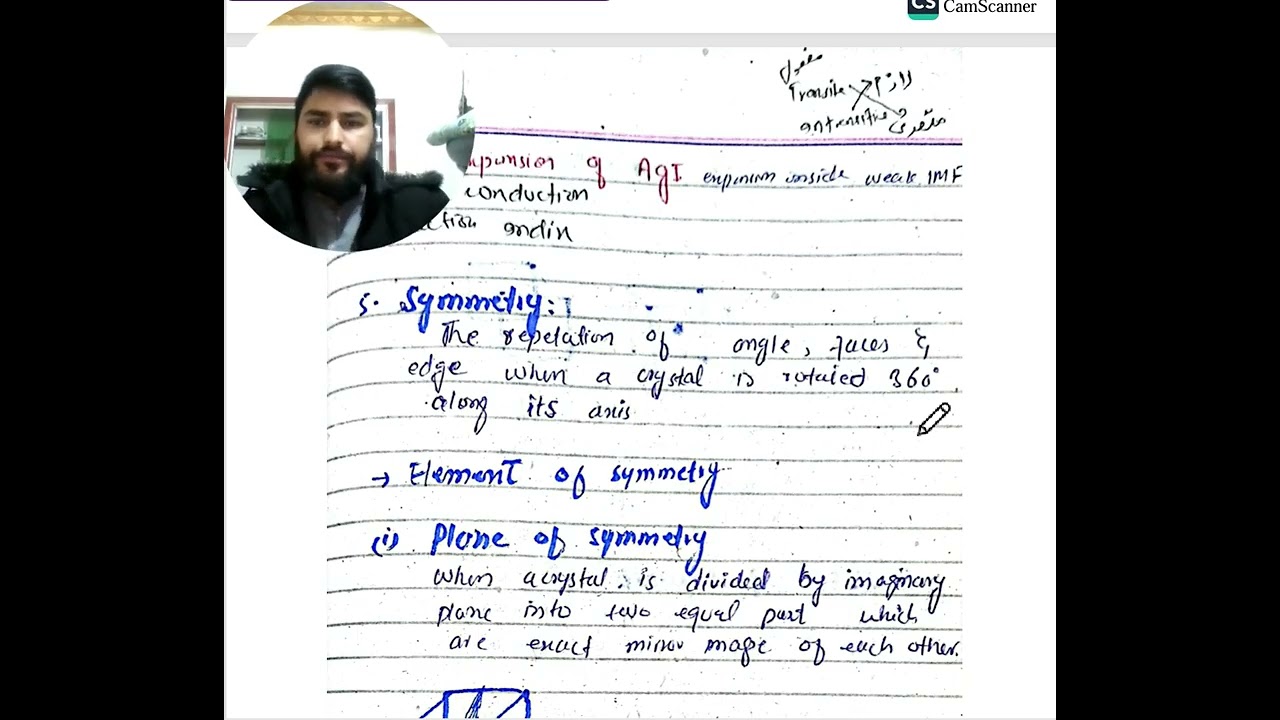 CS CamScanner
مفعول
Transitive لازم
antransitive متعدی
expansion of AgI expansion inside weak IMF
conduction
ction andin
5. Symmetry:
The repetation of angle, faces &
edge when a crystal is rotated 360°
along its axis
→ Element of symmetry
(i) Plane of symmetry
when a crystal is divided by imaginary
plane into two equal part which
are exact mirror mage of each other.